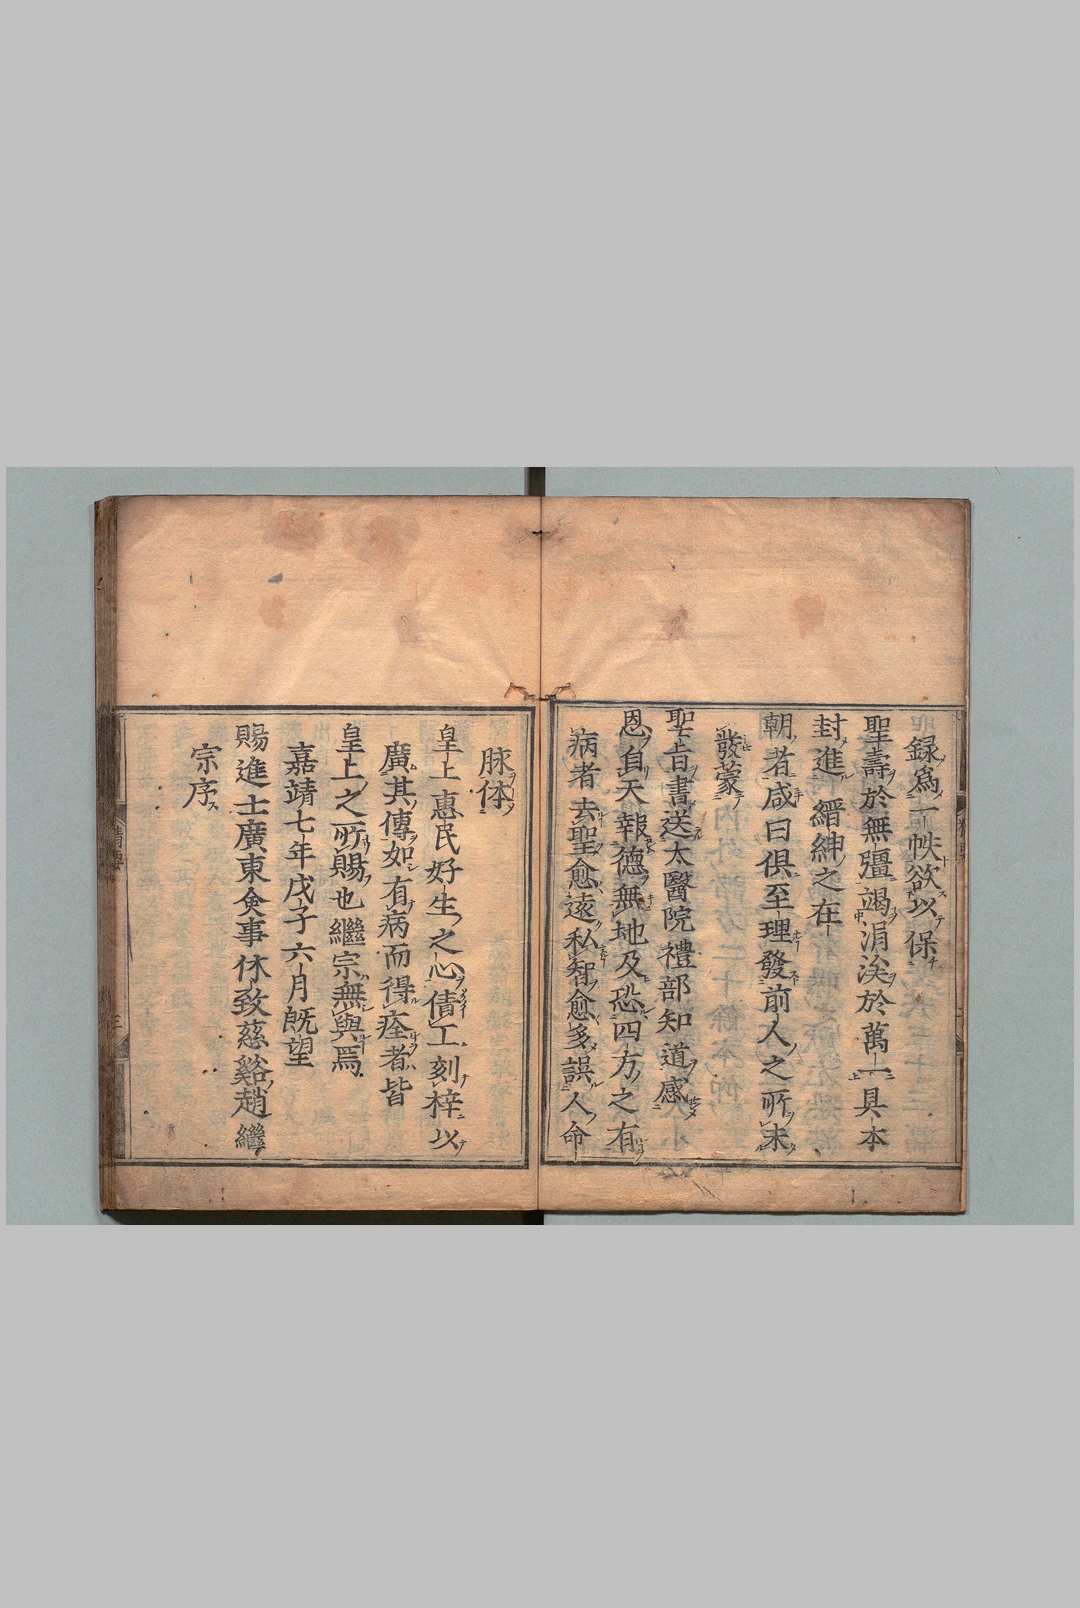 録爲一帙欲以保
聖壽於無彊竭涓涘於萬一具本
封進縉紳之在
朝者咸曰俱至理發前人之所未
發蒙
聖旨書送太醫院禮部知道感
恩自天報德無地及恐四方之有
病者去聖愈遠私智愈多誤人命
脉体
皇上惠民好生之心倩工刻梓以
廣其傳如有病而得痊者皆
皇上之所賜也繼宗無與焉
嘉靖七年戊子六月既望
賜進士廣東僉事休致慈谿趙繼
宗序